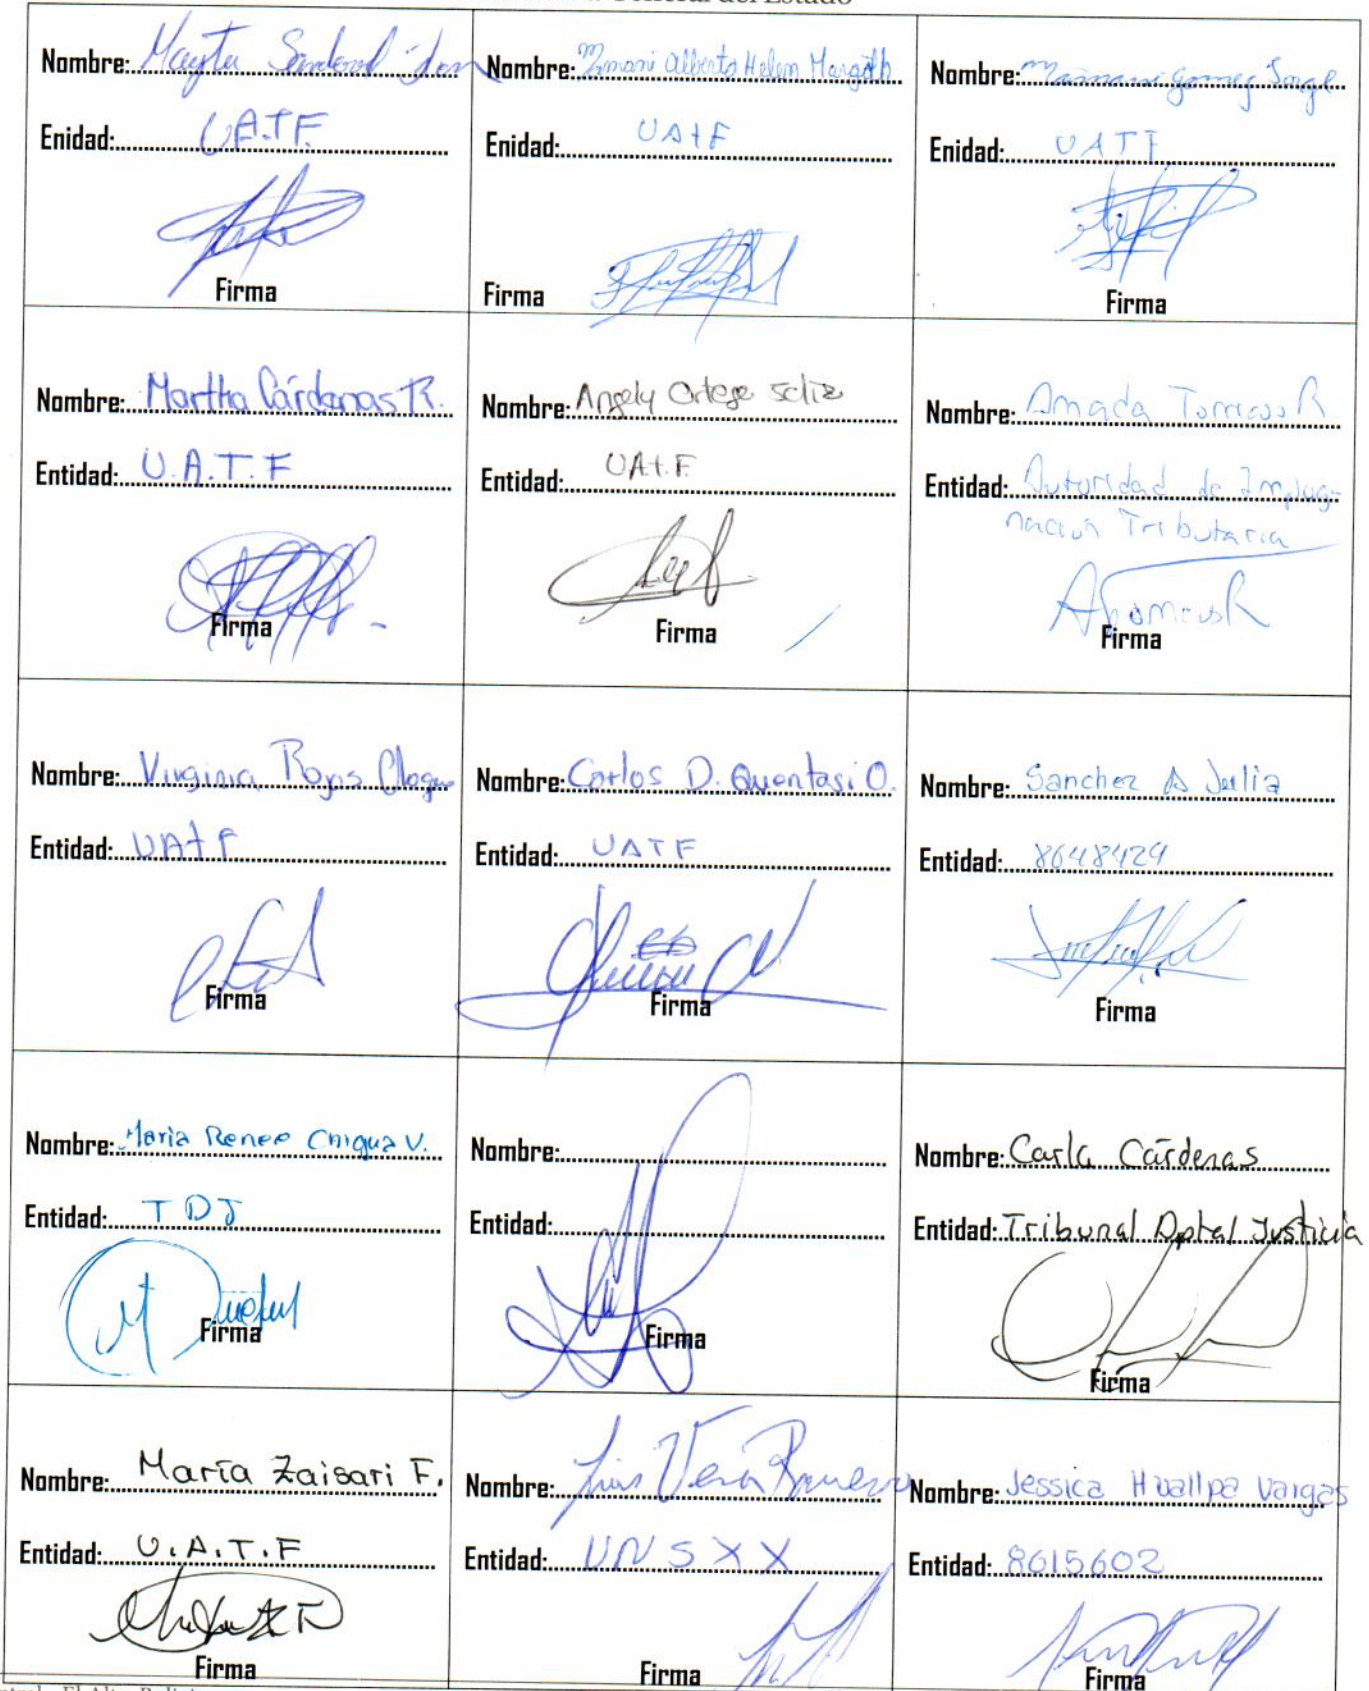 General del Estado
Nombre: Mayta Sandoval
Enidad: U.A.T.F.
Firma
Nombre: Mamani Alberto Helen Margoth
Enidad: UATF
Firma
Nombre: Mamani Gomez Jorge
Enidad: UATF
Firma
Nombre: Martha Cárdenas R.
Entidad: U.A.T.F
Firma
Nombre: Angely Ortega Soliz
Entidad: UAt.F
Firma
Nombre: Amada Torricos R
Entidad: Autoridad de Impug-
nación Tributaria
Firma
Nombre: Virginia Rojas
Entidad: UAtF
Firma
Nombre: Carlos D. Quentasi O.
Entidad: UATF
Firma
Nombre: Sanchez A Julia
Entidad: 8648424
Firma
Nombre: Maria Renee Chigua V.
Entidad: TDJ
Firma
Nombre:
Entidad:
Firma
Nombre: Carla Cárdenas
Entidad: Tribunal Dptal Justicia
Firma
Nombre: María Zaisari F.
Entidad: U.A.T.F
Firma
Nombre: Luis Vera
Entidad: UNSXX
Firma
Nombre: Jessica Huallpa Vargas
Entidad: 8615602
Firma